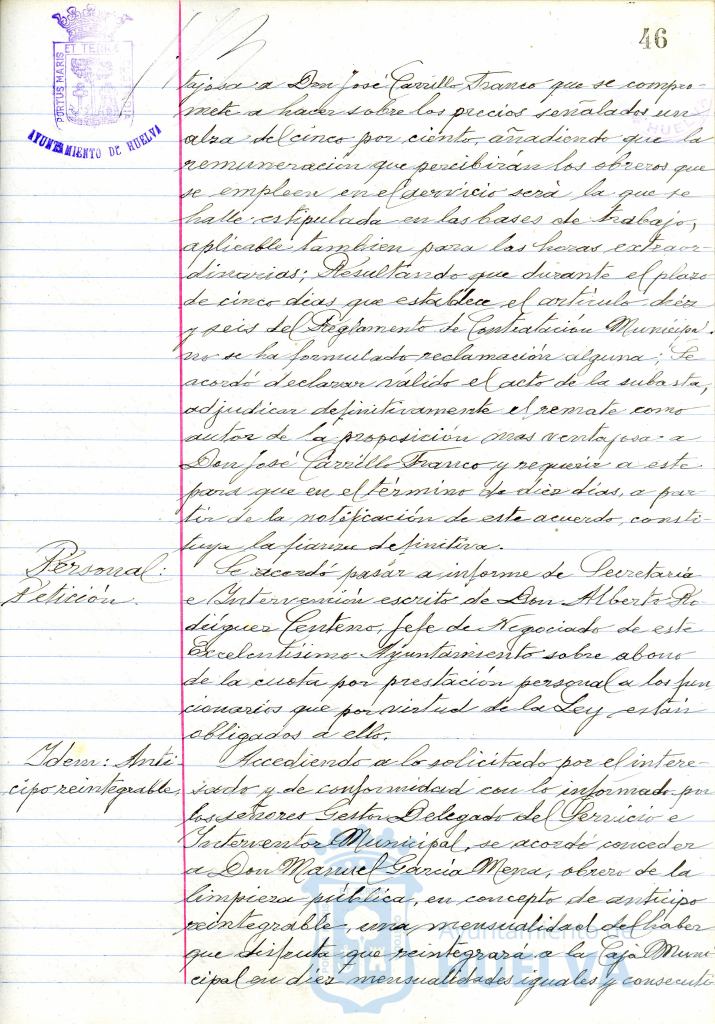 46
PORTUS MARIS
ET TERRÆ
AYUNTAMIENTO DE HUELVA
tajosa a Don José Carrillo Franco que se compro-
mete a hacer sobre los precios señalados un
alza del cinco por ciento, añadiendo que la
remuneración que percibirán los obreros que
se empleen en el servicio será la que se
halle estipulada en las bases de trabajo,
aplicable tambien para las horas extraor-
dinarias; Resultando que durante el plazo
de cinco días que establece el artículo diez
y seis del Reglamento de Contratación Municipal
no se ha formulado reclamación alguna; Se
acordó declarar válido el acto de la subasta,
adjudicar definitivamente el remate como
autor de la proposición mas ventajosa a
Don José Carrillo Franco y requerir a este
para que en el término de diez días, a par-
tir de la notificación de este acuerdo, consti-
tuya la fianza definitiva.
Personal:
Petición.
Se acordó pasar a informe de Secretaría
e Intervención escrito de Don Alberto Ro-
dríguez Centeno, Jefe de Negociado de este
Excelentísimo Ayuntamiento sobre abono
de la cuota por prestación personal a los fun-
cionarios que por virtud de la Ley están
obligados a ello.
Idem: Anti-
cipo reintegrable.
Accediendo a lo solicitado por el intere-
sado y de conformidad con lo informado por
los señores Gestor Delegado del Servicio e
Interventor Municipal, se acordó conceder
a Don Manuel García Mena, obrero de la
limpieza pública, en concepto de anticipo
reintegrable, una mensualidad del haber
que disfruta que reintegrará a la Caja Muni-
cipal en diez mensualidades iguales y consecuti-
Ayuntamiento de
HUELVA